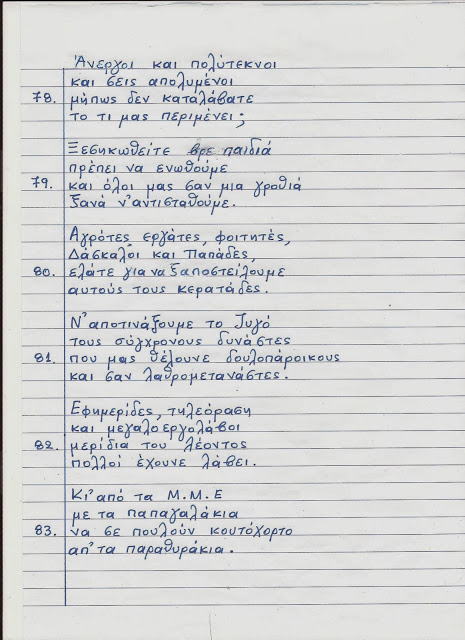 Άνεργοι και πολύτεκνοι
και σεις απολυμένοι
78. μήπως δεν καταλάβατε
το τι μας περιμένει;
Ξεσηκωθείτε βρε παιδιά
πρέπει να ενωθούμε
79. και όλοι μας σαν μια γροθιά
ξανά ν'αντισταθούμε.
Αγρότες εργάτες, φοιτητές,
Δάσκαλοι και Παπάδες,
80. ελάτε για να ξαποστείλουμε
αυτούς τους κερατάδες.
Ν'αποτινάξουμε το Ζυγό
τους σύγχρονους δυνάστες
81. που μας θέλουνε δουλοπάροικους
και σαν λαθρομετανάστες.
Εφημερίδες, τηλεόραση
και μεγαλοεργολάβοι
82. μερίδια του λέοντος
πολλοί έχουνε λάβει.
Κι'από τα Μ.Μ.Ε
με τα παπαγαλάκια
83. να σε πουλούν κουτόχορτο
απ'τα παραθυράκια.